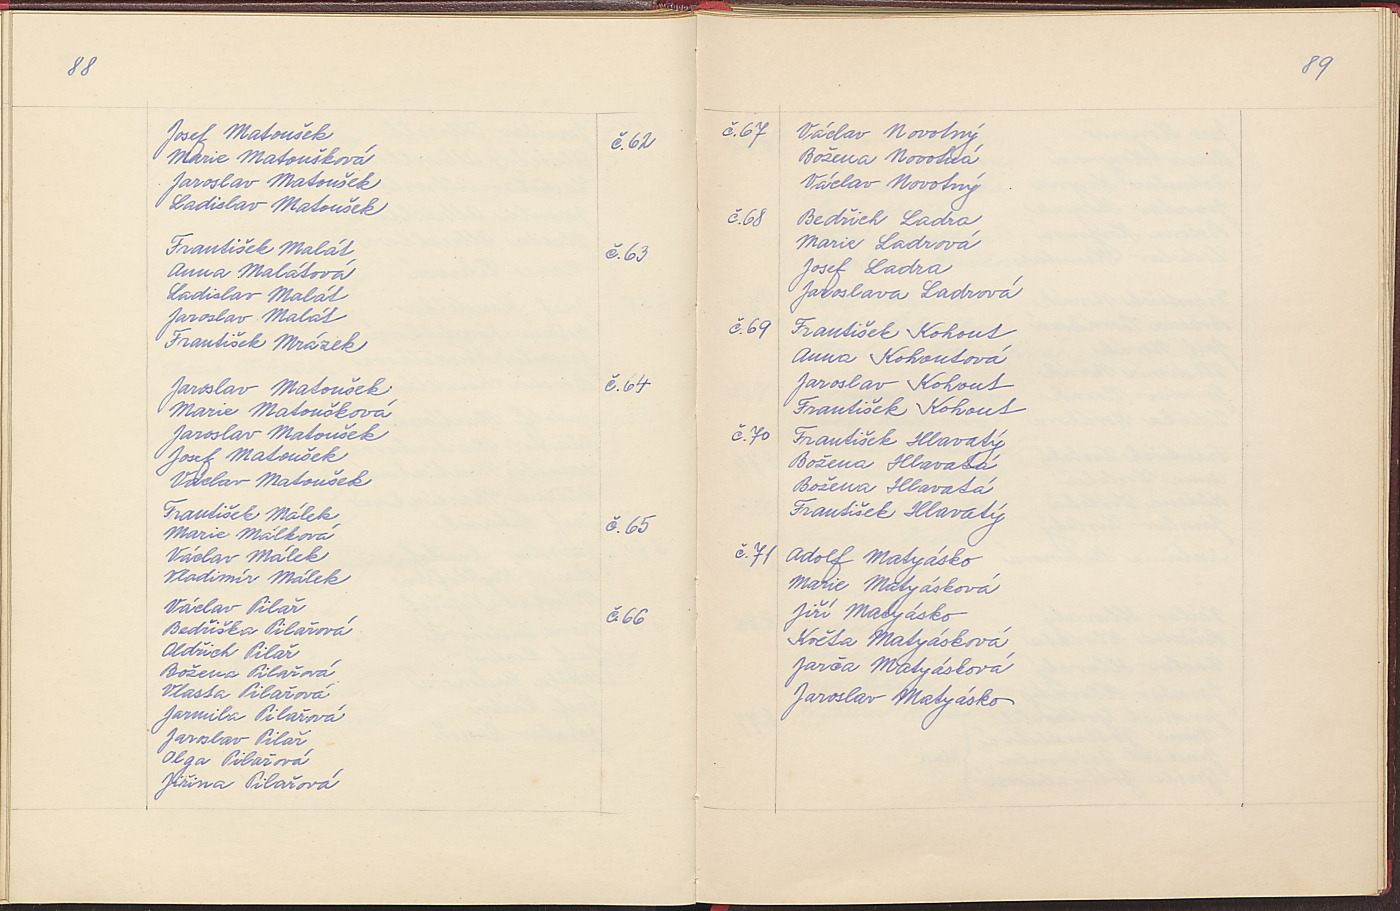 88
Josef Matoušek č.62
Marie Matoušková
Jaroslav Matoušek
Ladislav Matoušek
František Malát č.63
Anna Malátová
Ladislav Malát
Jaroslav Malát
František Mrázek
Jaroslav Matoušek č.64
Marie Matoušková
Jaroslav Matoušek
Josef Matoušek
Václav Matoušek
František Málek č.65
Marie Málková
Václav Málek
Vladimír Málek
Václav Pilař č.66
Bedřiška Pilařová
Oldřich Pilař
Božena Pilařová
Vlasta Pilařová
Jarmila Pilařová
Jaroslav Pilař
Olga Pilařová
Jiřina Pilařová
89
č.67 Václav Novotný
Božena Novotná
Václav Novotný
č.68 Bedřich Ladra
Marie Ladrová
Josef Ladra
Jaroslava Ladrová
č.69 František Kohout
Anna Kohoutová
Jaroslav Kohout
František Kohout
č.70 František Hlavatý
Božena Hlavatá
Božena Hlavatá
František Hlavatý
č.71 Adolf Matyásko
Marie Matyásková
Jiří Matyásko
Květa Matyásková
Jarča Matyásková
Jaroslav Matyásko